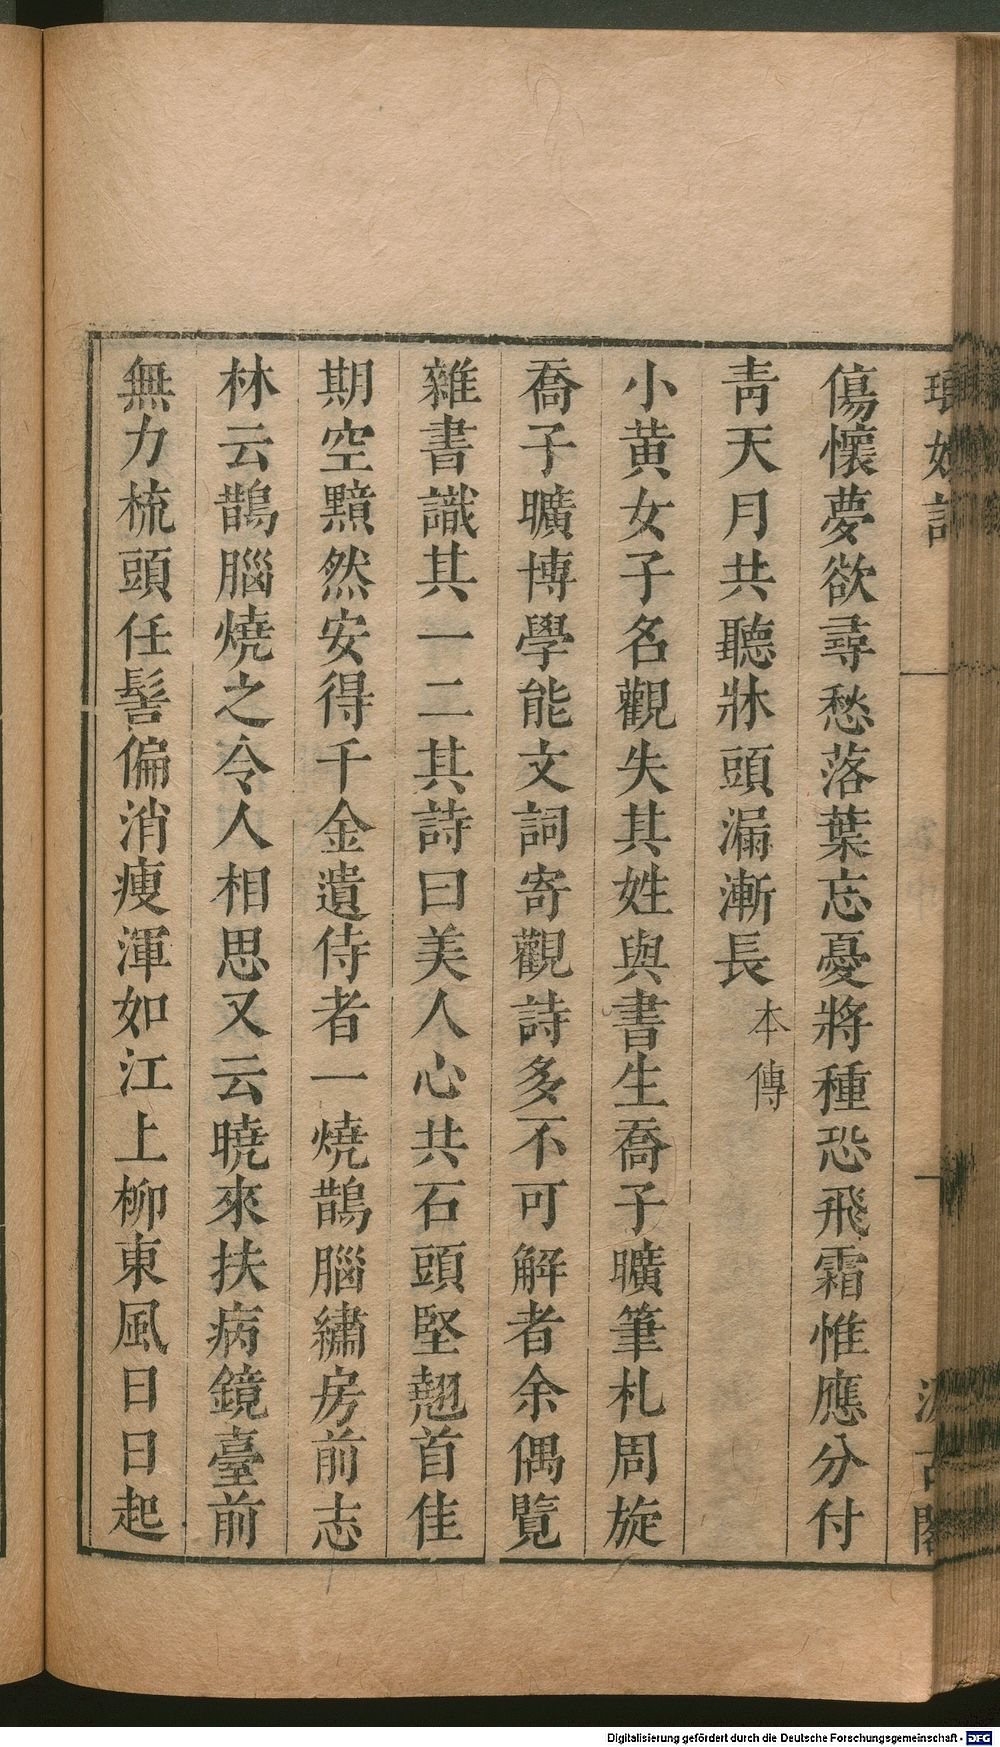 傷懷夢欲尋愁落葉忘憂將種恐飛霜惟應分付
青天月共聽牀頭漏漸長本傳
小黄女子名觀失其姓與書生喬子曠筆札周旋
喬子曠博學能文詞寄觀詩多不可解者余偶覽
雜書識其一二其詩曰美人心共石頭堅翹首佳
期空黯然安得千金遺侍者一燒鵲腦繡房前志
林云鵲腦燒之令人相思又云曉來扶病鏡臺前
無力梳頭任髻偏消瘦渾如江上柳東風日日起
Digitalisierung gefördert durch die Deutsche Forschungsgemeinschaft - DFG